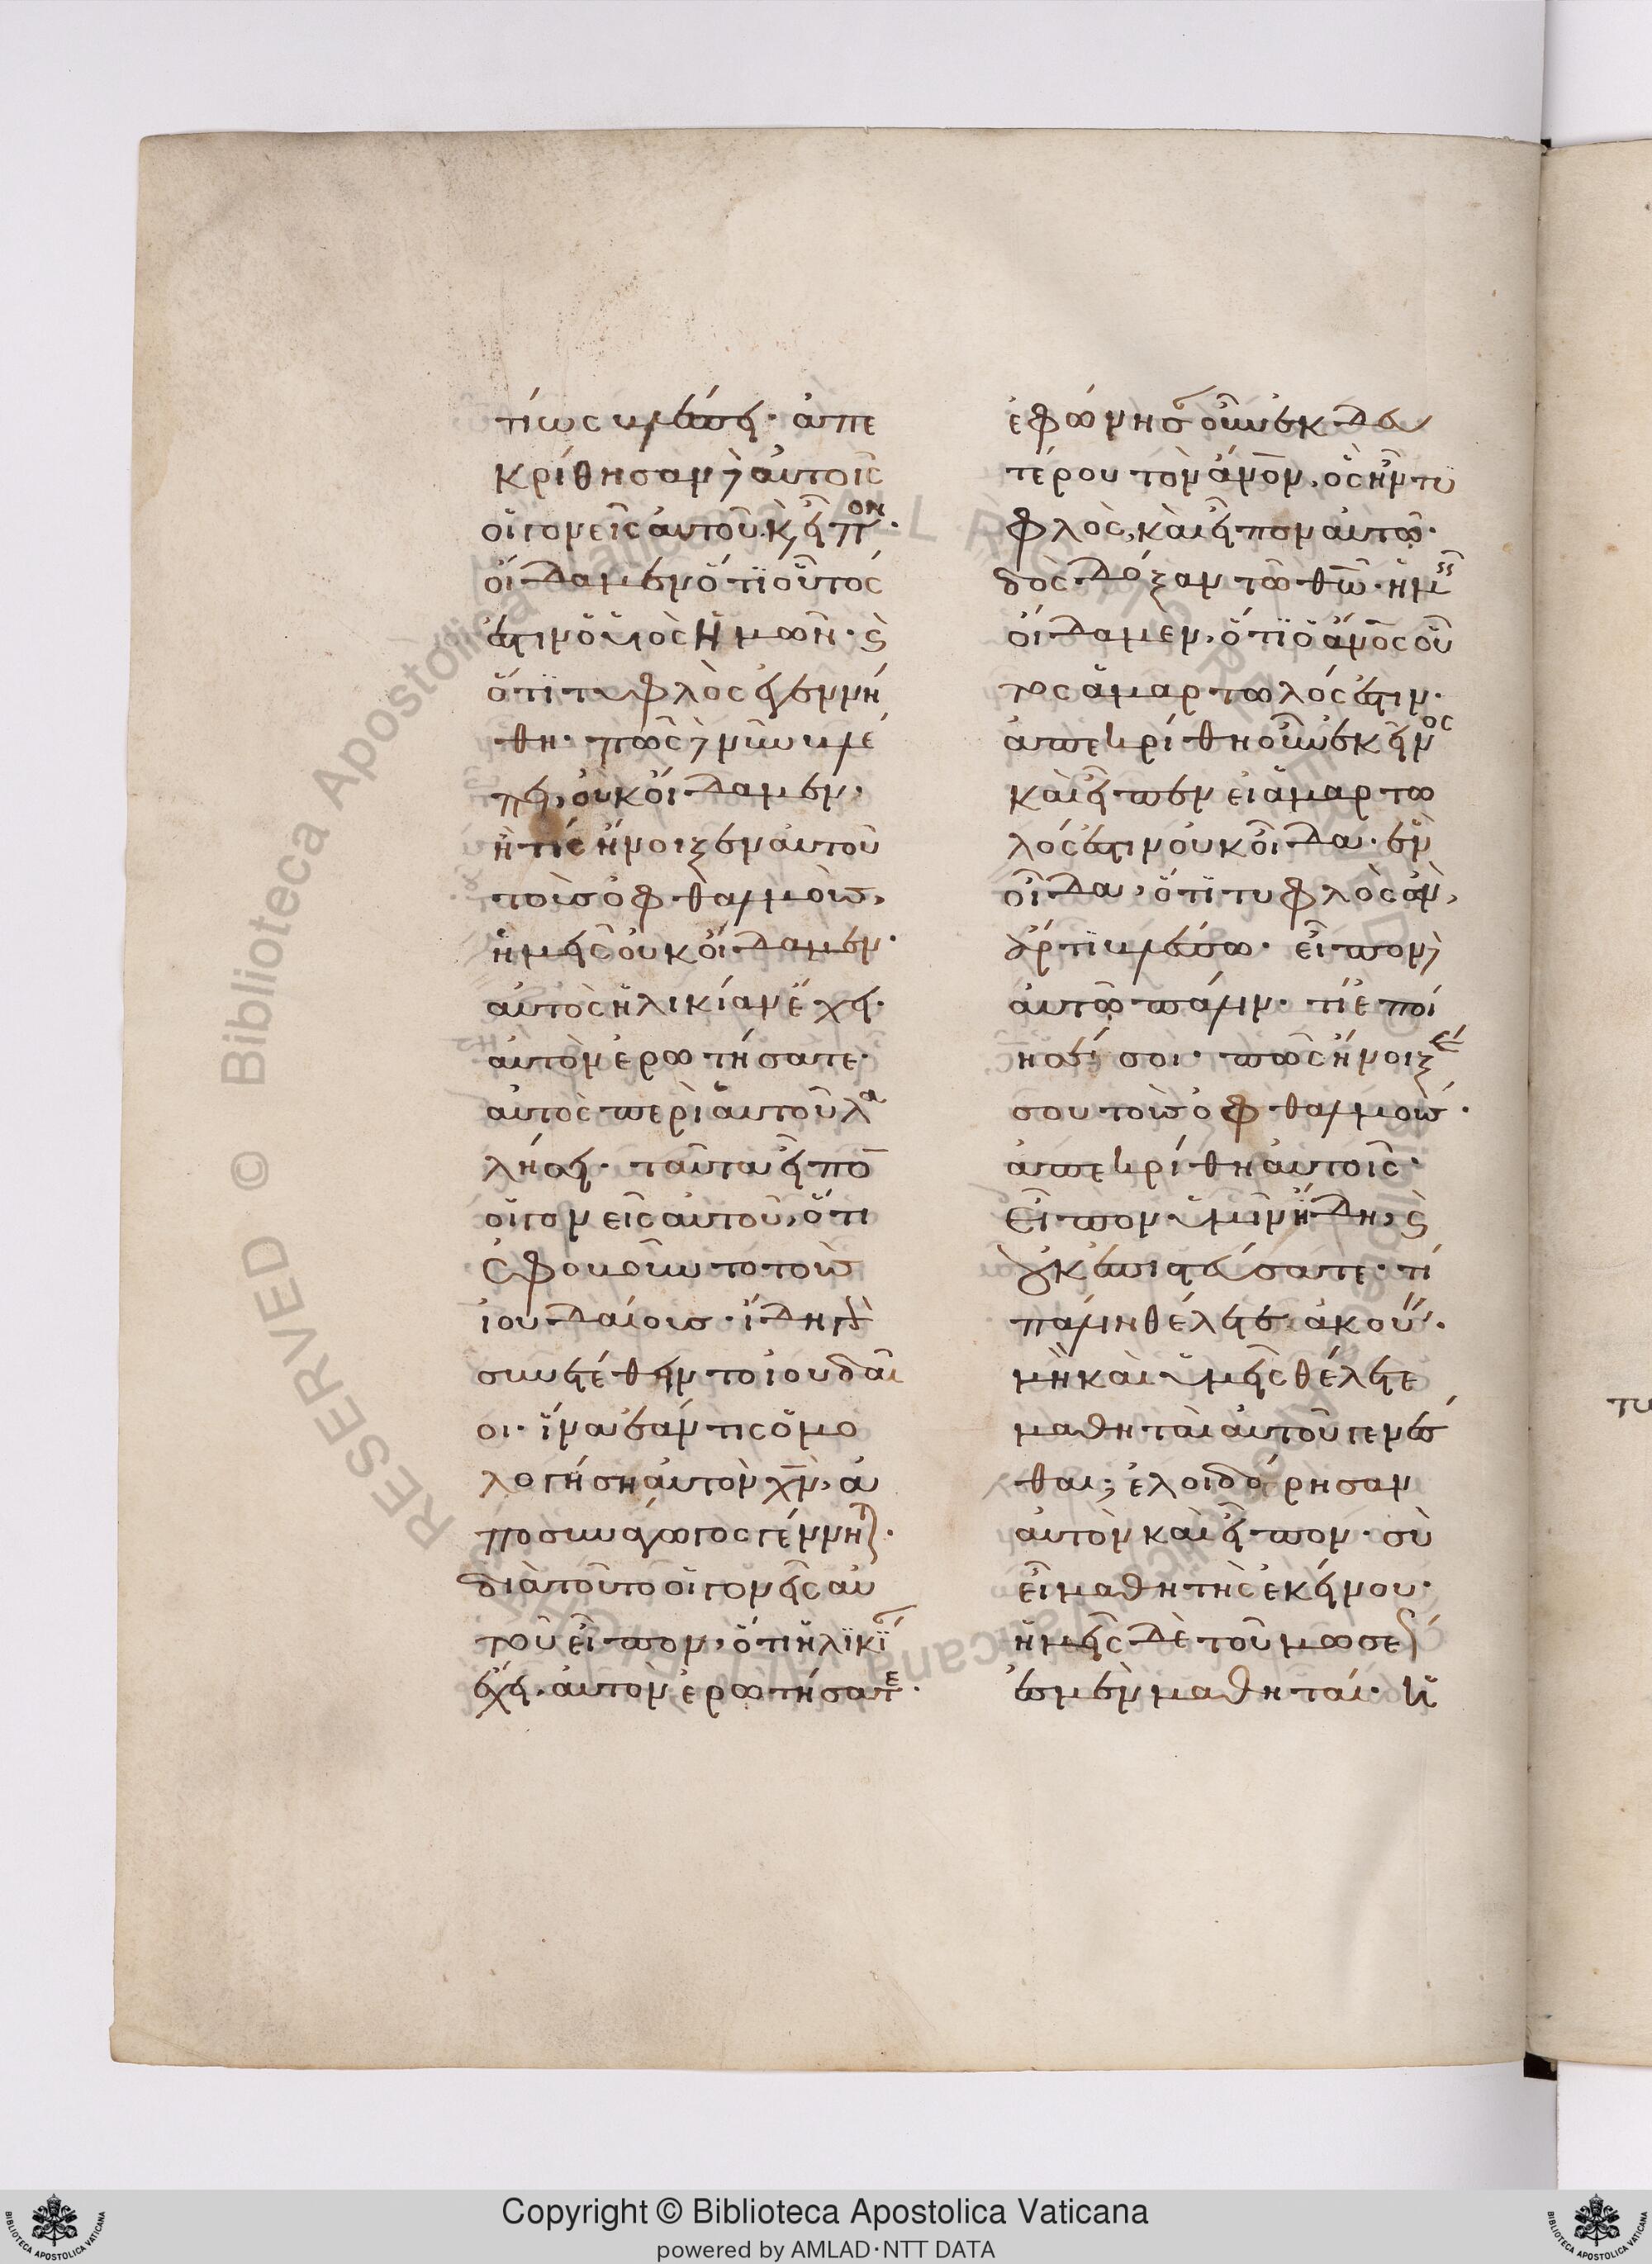 τίως βλέπει· ἀπε
κρίθησαν δὲ αὐτοῖς
οἱ γονεῖς αὐτοῦ κ(αὶ) εἶπον·
οἴδαμεν ὅτι οὗτός
ἐστιν ὁ υἱὸς ἡμῶν· κ(αὶ)
ὅτι τυφλὸς ἐγεννή
θη· πῶς δὲ νῦν βλέ
πει, οὐκ οἴδαμεν·
ἢ τίς ἤνοιξεν αὐτοῦ
τοὺς ὀφθαλμοὺς,
ἡμεῖς οὐκ οἴδαμεν·
αὐτὸς ἡλικίαν ἔχει·
αὐτὸν ἐρωτήσατε·
αὐτὸς περὶ ἁυτοῦ λα
λήσει· ταῦτα εἶπο
οἱ γονεῖς αὐτοῦ, ὅτι
ἐφοβοῦντο τοὺς
ἰουδαίους· ἤδη γὰρ
συνετέθειντο ἰουδαῖ
οι· ἵνα ἐάν τις ὁμο
λογήσῃ αὐτὸν χν, ἀ
ποσυνάγωγος γένητ(αι)·
διατοῦτο οἱ γονεῖς αὐ
τοῦ εἶπον, ὅτι ἡλικί(αν)
ἔχει, αὐτὸν ἐρωτήσατε·
ἐφώνησ(αν) οὖν ἐκ δευ
τέρου τὸν ἄνον, ὃς ἦν τυ
φλὸς, καὶ εἶπον αὐτῶ·
δὸς δόξαν τῶ θω· ἡμεῖς
οἴδαμεν, ὅτι ὁ ἄνος οὗ
τος ἁμαρτωλός ἐστιν·
ἀπεκρίθη οὖν ἐκεῖνος
καὶ εἶπεν εἰ ἁμαρτω
λός ἐστιν οὐκ οἶδα· ἓν
οἶδα, ὅτι τυφλὸς ὢν,
ἄρτι βλέπω· εἶπον δὲ
αὐτῶ πάλιν· τί ἐποί
ησέ σοι· πῶς ἤνοιξέ
σου τοὺς ὀφθαλμούς·
ἀπεκρίθη αὐτοῖς·
Εἶπον ὑμῖν ἤδη, κ(αὶ)
οὐκ ἐπιστεύσατε· τί
πάλιν θέλετε ἀκούειν·
μὴ καὶ ὑμεῖς θέλετε
μαθηταὶ αὐτοῦ γενέσ
θαι; ἐλοιδόρησαν
αὐτὸν καὶ εἶπον· σὺ
εἶ μαθητὴς ἐκείνου·
ἡμεῖς δὲ τοῦ μωσέ(ως)
ἐσμὲν μαθηταί· ἡ
Copyright © Biblioteca Apostolica Vaticana
powered by AMLAD·NTT DATA